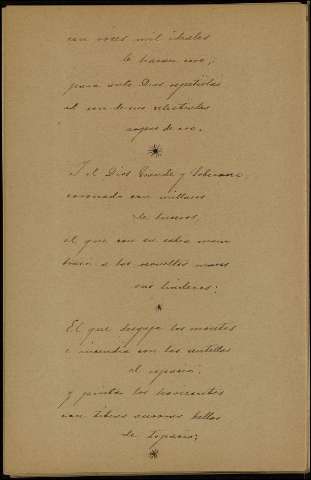 con voces mil ideales
le hacen coro;
para ante Dios repetirlas
al son de sus celestiales
arpas de oro.
Y el Dios Grande y Soberano,
coronado con millares
de luceros,
el que con su sabia mano
trazó a los revueltos mares
sus linderos;
El que desgaja los montes
e incendia con las centellas
el espacio;
y pinta los horizontes
con tibios auroras bellas
de topacio;